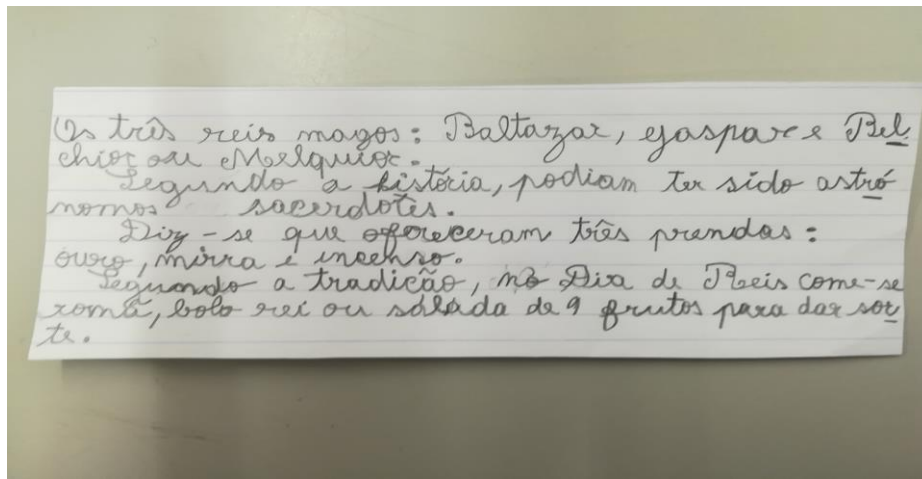 Os três reis magos: Baltazar, gaspar e Bel
chior ou Melquior.
Segundo a história, podiam ter sido astró
nomos sacerdotes.
Diz-se que ofereceram três prendas:
ouro, mirra e incenso.
Segundo a tradição, no Dia de Reis come-se
romã, bolo rei ou salada de 9 frutos para dar sor
te.